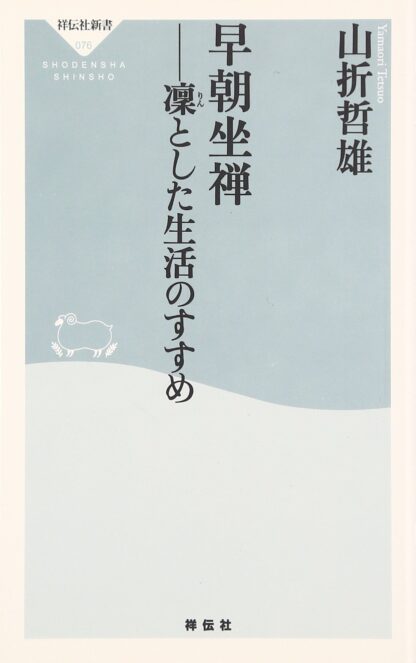 祥伝社新書
076
SHODENSHA
SHINSHO
山折哲雄
Yamaori Tetsuo
早朝坐禅
――凜とした生活のすすめ
りん
祥伝社